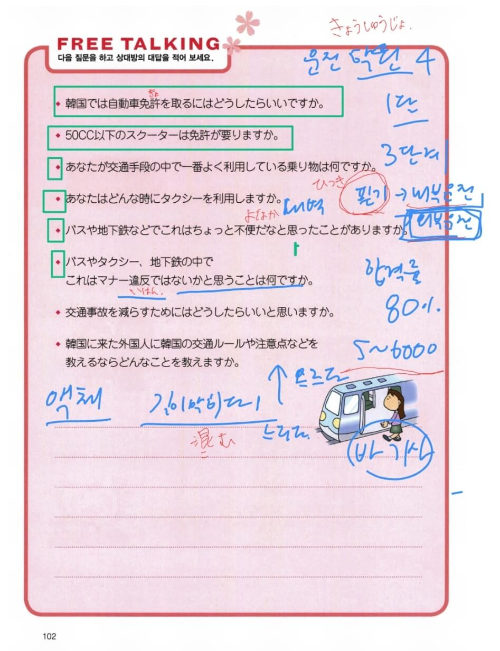 きょうしゅうじょ.
FREE TALKING
다음 질문을 하고 상대방의 대답을 적어 보세요.
운전 4
1단
韓国では自動車免許を取るにはどうしたらいいですか。
きょ
50CC以下のスクーターは免許が要りますか。
3단계
あなたが交通手段の中で一番よく利用している乗り物は何ですか。
ひっき
필기 → 내부운전
あなたはどんな時にタクシーを利用しますか。
よなか
→ 외부운전
バスや地下鉄などでこれはちょっと不便だなと思ったことがありますか。
バスやタクシー、地下鉄の中で
これはマナー違反ではないかと思うことは何ですか。
いはん
합격률
80%.
交通事故を減らすためにはどうしたらいいと思いますか。
韓国に来た外国人に韓国の交通ルールや注意点などを
教えるならどんなことを教えますか。
5~6000
액체
길이 막히다
↑
混む
こ
느리다
102